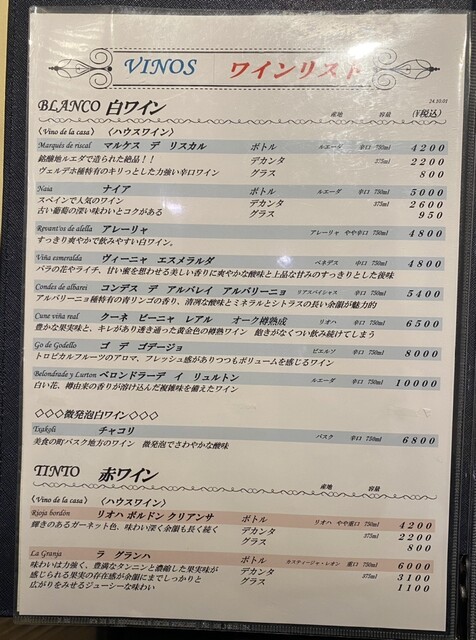 VINOS ワインリスト
BLANCO 白ワイン 産地 容量 24.10.01 (¥税込)
〈Vino de la casa〉 〈ハウスワイン〉
Marqués de riscal マルケス デ リスカル ボトル ルエーダ 辛口 750ml 4200
銘醸地ルエダで造られた絶品！！ デカンタ 375ml 2200
ヴェルデホ種特有のキリっとした力強い辛口ワイン グラス 800
Naia ナイア ボトル ルエーダ 辛口 750ml 5000
スペインで人気のワイン デカンタ 375ml 2600
古い葡萄の深い味わいとコクがある グラス 950
アレーリャ アレーリャ やや辛口 750ml 4800
すっきり爽やかで飲みやすい白ワイン。
Viña esmeralda ヴィーニャ エスメラルダ ペネデス 中口 750ml 4800
バラの花やライチ、甘い蜜を思わせる美しい香りに爽やかな酸味と上品な甘みのすっきりとした後味
Condes de albarei コンデス デ アルバレイ アルバリーニョ リアスバイシャス 辛口 750ml 5400
アルバリーニョ種特有の青リンゴの香り、清冽な酸味とミネラルとシトラスの長い余韻が魅力的
Cune viña real クーネ ビーニャ レアル オーク樽熟成 リオハ 辛口 750ml 6500
豊かな果実味と、キレがあり透き通った黄金色の樽熟ワイン 飽きがなくつい飲み続けてしまう
Go de Godello ゴ デ ゴデージョ ビエルソ 辛口 750ml 8000
トロピカルフルーツのアロマ、フレッシュ感がありつつもボリュームを感じるワイン
Belondrade y Lurton ベロンドラーデ イ リュルトン ルエーダ 辛口 750ml 10000
白い花、樽由来の香りが溶け込んだ複雑味を備えたワイン
◇◇◇微発泡白ワイン◇◇◇
Txakoli チャコリ バスク 辛口 750ml 6800
美食の町バスク地方のワイン 微発泡でさわやかな酸味
TINTO 赤ワイン 産地 容量
〈Vino de la casa〉 〈ハウスワイン〉
Rioja bordón リオハ ボルドン クリアンサ ボトル リオハ やや重口 750ml 4200
輝きのあるガーネット色、味わい深く余韻も長く続く デカンタ 375ml 2200
グラス 800
La Granja ラ グランハ ボトル カスティージャ・レオン 重口 750ml 6000
味わいは力強く、豊満なタンニンと濃縮した果実味が デカンタ 375ml 3100
感じられる果実の存在感が余韻にまでしっかりと グラス 1100
広がりをみせるジューシーな味わい